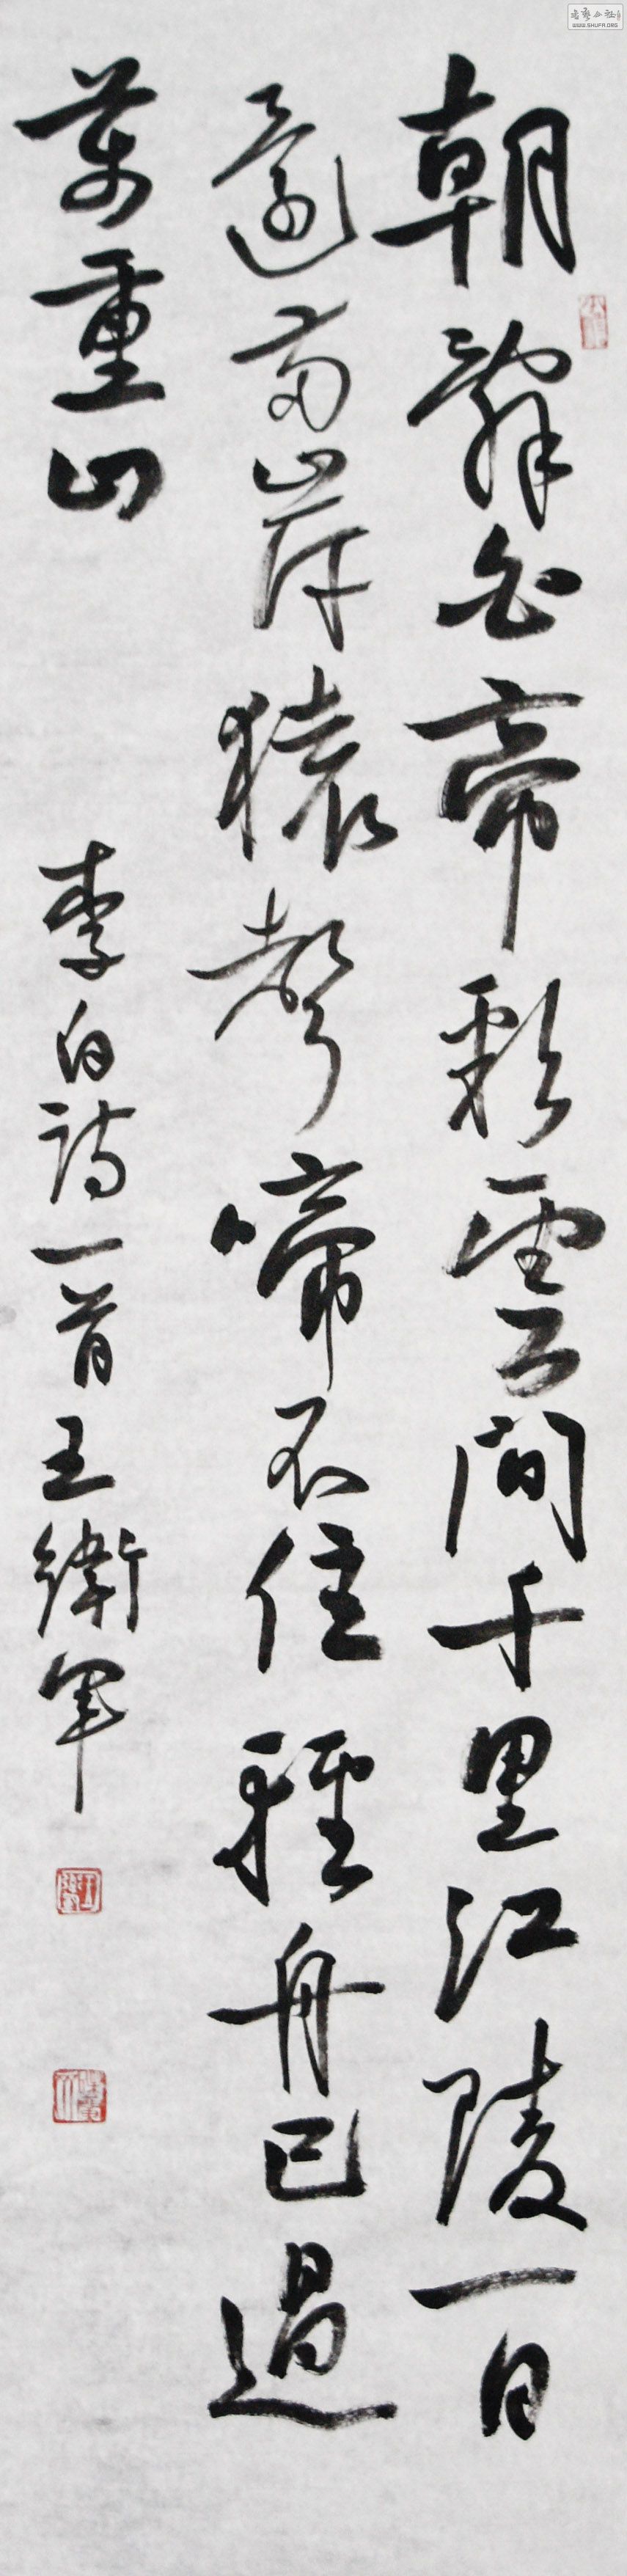 朝辭白帝彩雲間千里江陵一日
還兩岸猿聲啼不住輕舟已過
萬重山
李白詩一首王衛軍
WWW.SHUFA.ORG